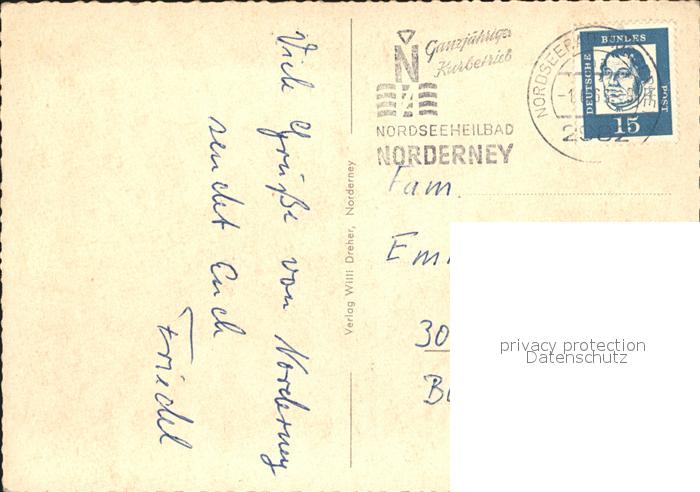 Viele Grüße von Norderney
sendet Euch
Friedel
Verlag Willi Dreher, Norderney
Ganzjähriger
Kurbetrieb
N
NORDSEEHEILBAD
NORDERNEY
DEUTSCHE BUNDESPOST
15
Fam.
30
privacy protection
Datenschutz